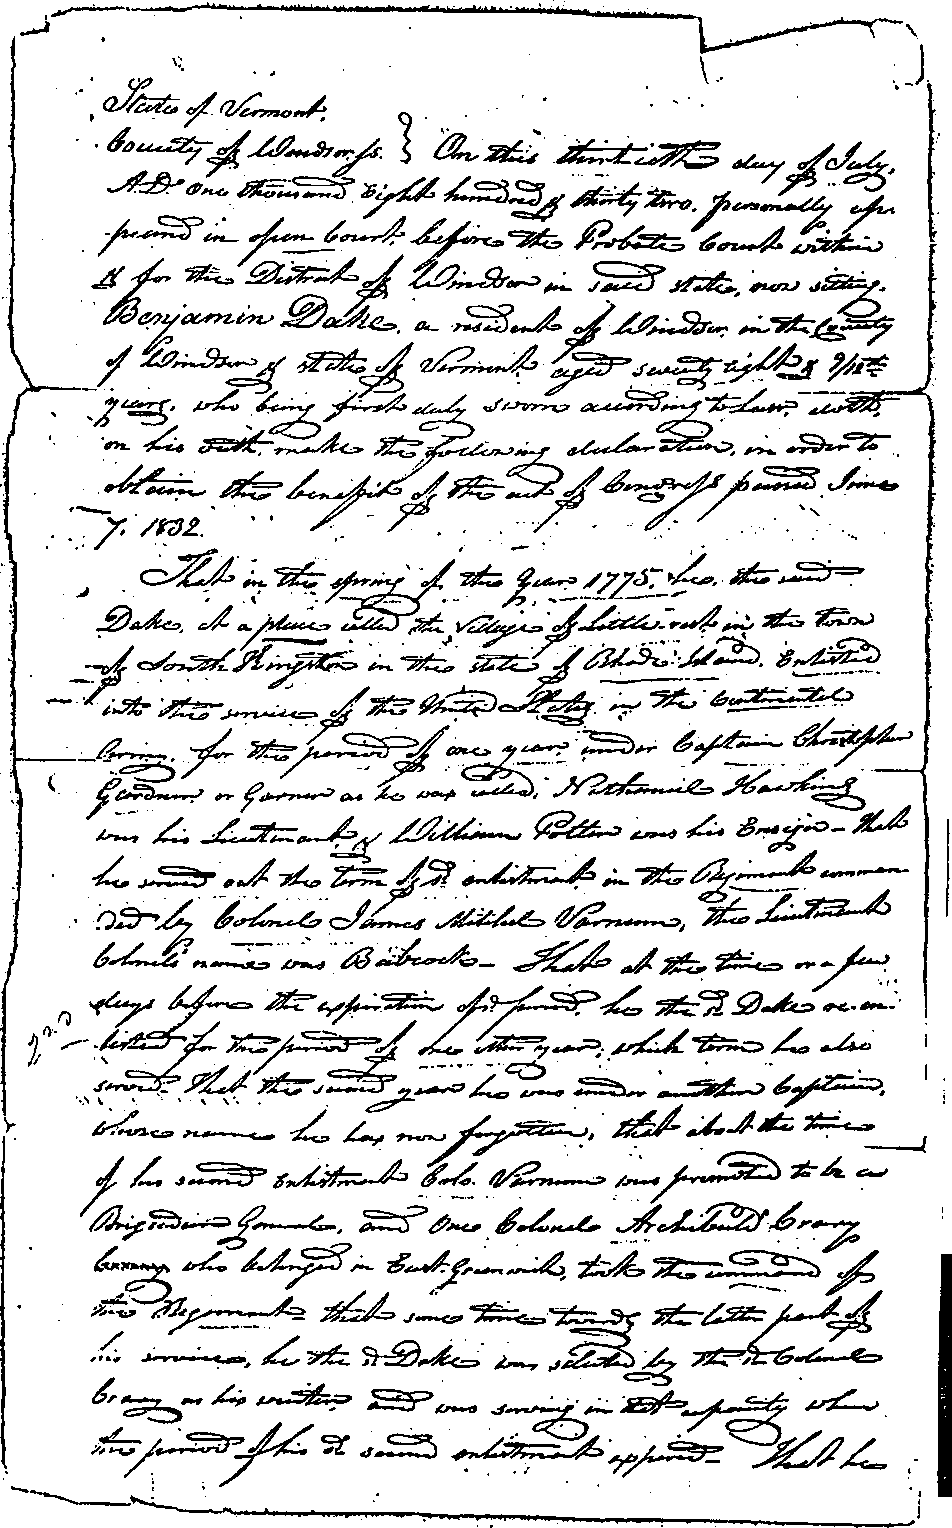 State of Vermont.
County of Windsor ss. } On this thirtieth day of July,
A.D. one thousand Eight hundred & thirty two, personally ap-
peared in open Court, before the Probate Court within
& for the District of Windsor in said state, now sitting.
Benjamin Dake, a resident of Windsor, in the County
of Windsor & state of Vermont aged seventy eight & 9/12th
years, who being first duly sworn according to Law, doth,
on his oath, make the following declaration, in order to
obtain the benefit of the act of Congress passed June
7. 1832.
That in the spring of the Year 1775, he, the said
Dake, at a place called the Village of Little-rest in the town
of South Kingston in the state of Rhode Island, Enlisted
into the service of the United States in the Continental
Army, for the period of one year under Captain Christopher
Gardner or Garner as he was called, Nathaniel Hawkins
was his Lieutenant & William Potter was his Ensign – that
he served out the term of sd. enlistment in the Regiment comman-
ded by Colonel James Mitchel Varnum, the Lieutenant
Colonel's name was Babcock – That at the time or a few
days before the expiration of sd. period, he the sd Dake re-en-
2nd
listed for the period of one other year, which term he also
served – that the second year he was under another Captain,
whose name he has now forgotten, that about the time
of his second Enlistment Colo. Varnum was promoted to be a
Brigadier General, and One Colonel Archibald Crary
who belonged in East-Greenwich, took the command of
the Regiment – that some time towards the latter part of
his service, he the sd Dake was selected by the sd Colonel
Crary as his waiter, and was serving in that capacity when
the period of his sd second enlistment expired – That he